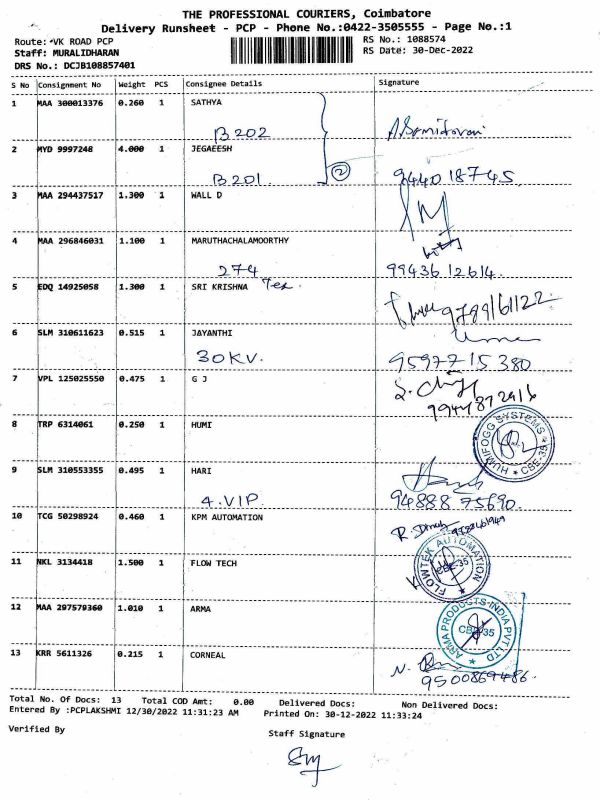 THE PROFESSIONAL COURIERS, Coimbatore
Delivery Runsheet - PCP - Phone No.:0422-3505555 - Page No.:1
Route: VK ROAD PCP RS No.: 1088574
Staff: MURALIDHARAN RS Date: 30-Dec-2022
DRS No.: DCJB108857401
S No Consignment No Weight PCS Consignee Details Signature
1 MAA 300013376 0.260 1 SATHYA
B 202
2 MYD 9997248 4.000 1 JEGAEESH
B 201 2 94401 8745
3 MAA 294437517 1.300 1 WALL D
4 MAA 296846031 1.100 1 MARUTHACHALAMOORTHY
274 99436 12614
5 EDQ 14925058 1.300 1 SRI KRISHNA Tex 9789161122
6 SLM 310611623 0.515 1 JAYANTHI
30KV. 95977 15 380
7 VPL 125025550 0.475 1 G J
8 TRP 6314061 0.250 1 HUMI HUMIFOGG SYSTEMS CBE-35
9 SLM 310553355 0.495 1 HARI
4.VIP. 94888 75690.
10 TCG 50298924 0.460 1 KPM AUTOMATION
11 NKL 3134418 1.500 1 FLOW TECH FLOWTEK AUTOMATION CBE-35
12 MAA 297579360 1.010 1 ARMA ARMA PRODUCTS-INDIA PVT LTD CBE-35
13 KRR 5611326 0.215 1 CORNEAL
9500869486.
Total No. Of Docs: 13 Total COD Amt: 0.00 Delivered Docs: Non Delivered Docs:
Entered By :PCPLAKSHMI 12/30/2022 11:31:23 AM Printed On: 30-12-2022 11:33:24
Verified By Staff Signature